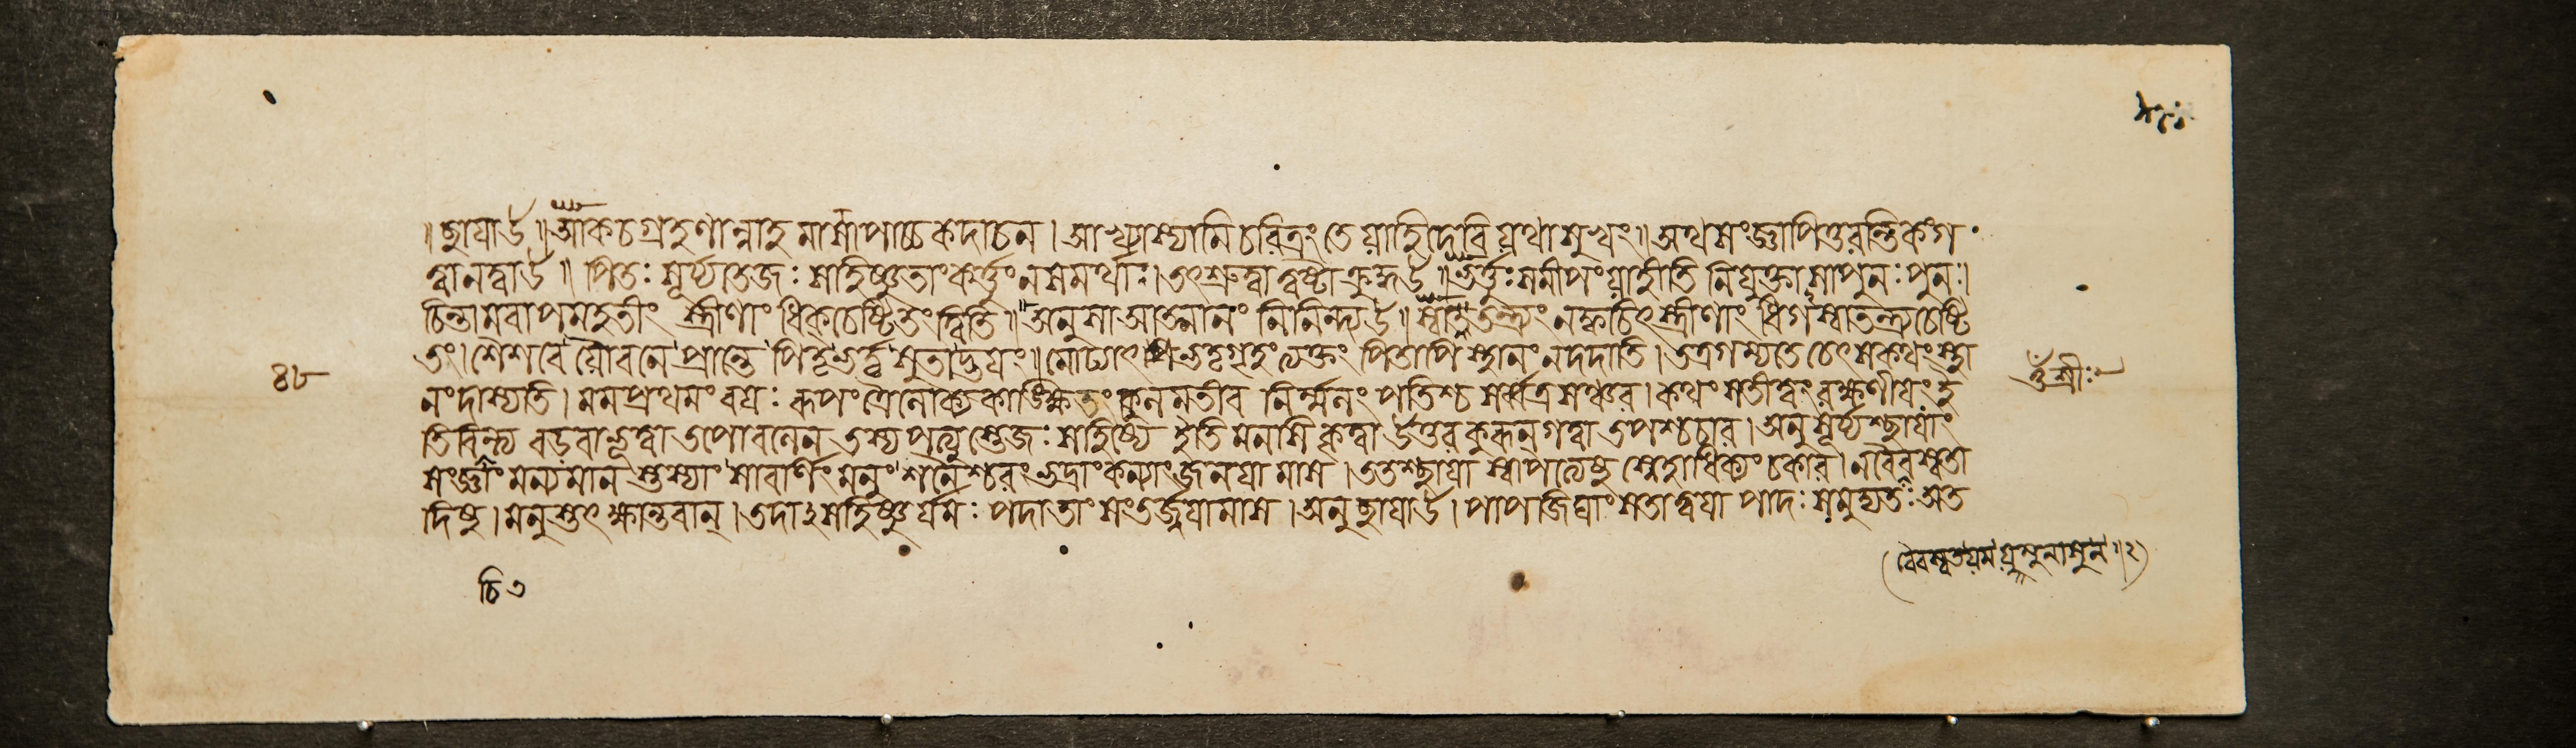 ॥ ছাযাউ ॥ আকচগ্রহণান্নাহ নাশাপাচ্চ কদাচন । আখ্যাস্যামি চরিত্রং তে যাহি দেবি যথাসুখং ॥ অথ সংজ্ঞা পিতুরন্তিকং গ
ত্বা নত্বাউ ॥ পিতঃ সূর্য্যতেজঃ সাহিষ্ণুতাং কর্ত্তুং ন সমর্থাঃ । তৎ শ্রুত্বা ত্বষ্টা ক্রুদ্ধউ ॥ ভর্ত্তুঃ সমীপং যাহীতি নিযুক্তা সা পুনঃ পুনঃ ।
চিন্তামবাপ মহতীং স্ত্রীণাং ধিক্ চেষ্টিতং ত্বিতি ॥ অনু সা আত্মানং নিনিন্দ্যউ ॥ স্বাতন্ত্র্যং ন ক্বচিৎ স্ত্রীণাং ধিগস্বাতন্ত্র্যচেষ্টি
তং । শৈশবে যৌবনে প্রান্তে পিতৃভর্তৃসুতাদ্ভযং ॥ মোঢ্যাৎ ভর্তৃগৃহং ত্যক্তং পিতাপি স্থানং ন দদাতি । তত্র গম্যতে চেৎ স কথং স্থা
নং দাস্যতি । মম প্রথমং বযঃ রূপং ত্রৈলোক্যকাঙ্ক্ষিতং কুলমতীব নির্ম্মলং পতিশ্চ সর্ব্বত্র সঞ্চর । কথং সতীত্বং রক্ষণীযং ই
তি বিন্ত্য বড়বাভূত্বা তপোবলেন তস্য পত্যুস্তেজঃ সহিষ্যে ইতি মনসি কৃত্বা উত্তর কুরূন্ গত্বা তপশ্চচার । অনু সূর্য্যশ্ছাযাং
সংজ্ঞাং মন্যমান স্তস্যাং সাবর্ণিং মনুং শনৈশ্চরং ভদ্রাং কন্যাং জনযামাস । ততশ্ছাযা স্বাপত্যেষু স্নেহাধিক্যং চকার । ন বৈবস্বতা
দিষু । মনুস্তৎ ক্ষান্তবান্ । তদা ঽসহিষ্ণু র্যমঃ পদা তাং সংতর্জযামাস । অনু ছাযাউ । পাপ জিঘাংসতা ত্বযা পাদঃ সমুদ্যতঃ অত
৪৮
ওঁ শ্রীঃ
চিত
(বৈবস্বত যম যমুনাসু ন ॥ ২)